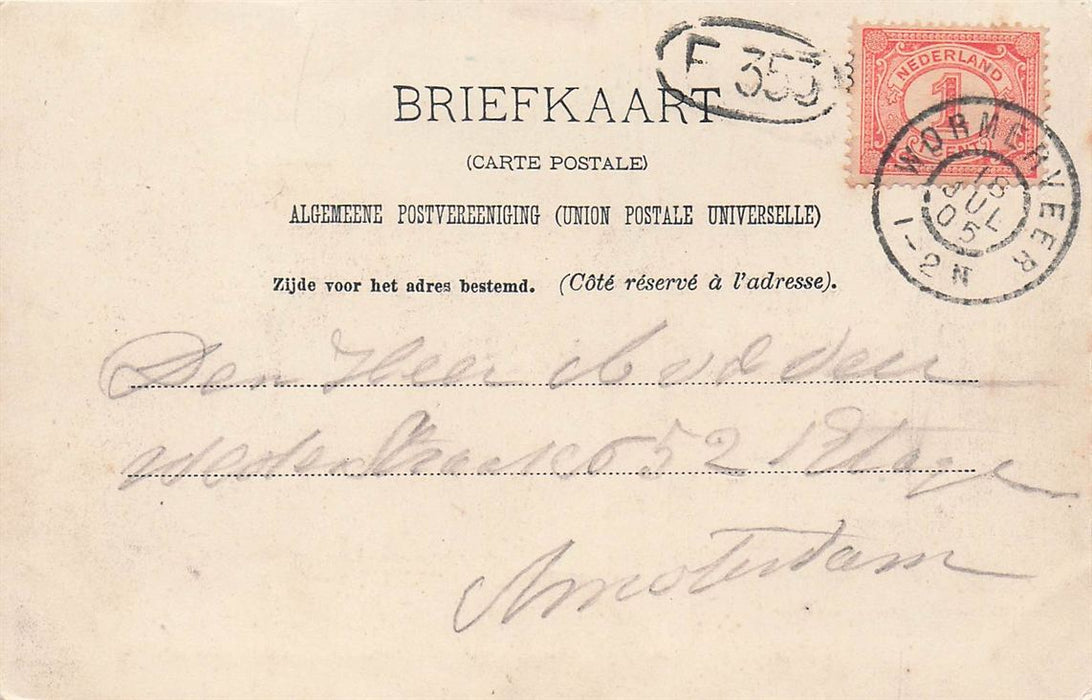 F 353
NEDERLAND
1
CENT
WORMERVEER
18
JUL
05
1-2N
BRIEFKAART
(CARTE POSTALE)
ALGEMEENE POSTVEREENIGING (UNION POSTALE UNIVERSELLE)
Zijde voor het adres bestemd. (Côté réservé à l'adresse).
Den Heer
52 1 Etage
Amsterdam